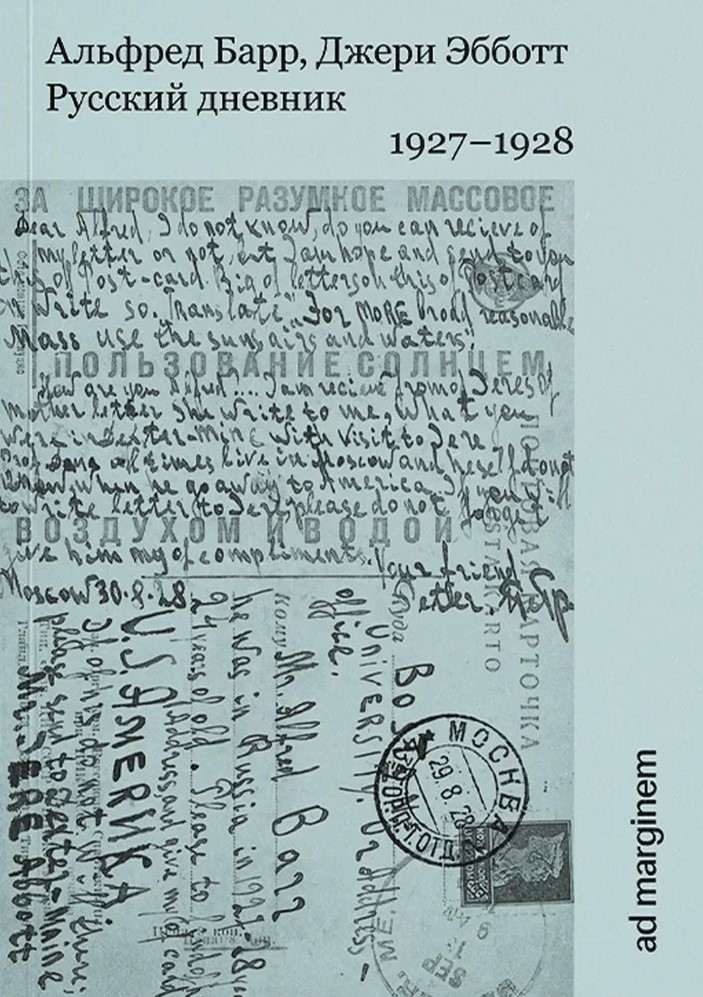 Альфред Барр, Джери Эбботт
Русский дневник
1927–1928
ЗА ШИРОКОЕ РАЗУМНОЕ МАССОВОЕ
Dear Alfred, I do not know, do you can recieve of
my letter or not, but I am hope and send to you
this of Post-card. Big of letters on this of Postcard
Write so. Translate "For MORE brody reasonable
Mass use the sun, airs and waters".
ПОЛЬЗОВАНИЕ СОЛНЦЕМ
How are you Alfred?... I am recieve from of Jeres of
mother letter she write to me, what you
were in Dexter-Mine with visit to Jere
all times live in Moscow and heself do not
know, when he go away to America. If you will
to write letter to Jere please do not forget
ВОЗДУХОМ И ВОДОЙ
give him my of compliments. Your friend
Moscow 30.8.28.
Petter
ПОЧТОВАЯ КАРТОЧКА
Куда
Bo
University. Or address-
office.
Кому
Mr. Alfred Barr
he was in Russia in 1927. 28 year
27 years of old. Please to
address and give my of card
U.S. АМЕRИКА
If of his do not
please send to Dexter-Maine
Mr. JERE Abbott
МОСКВА
29.8.28
SEP
ad marginem